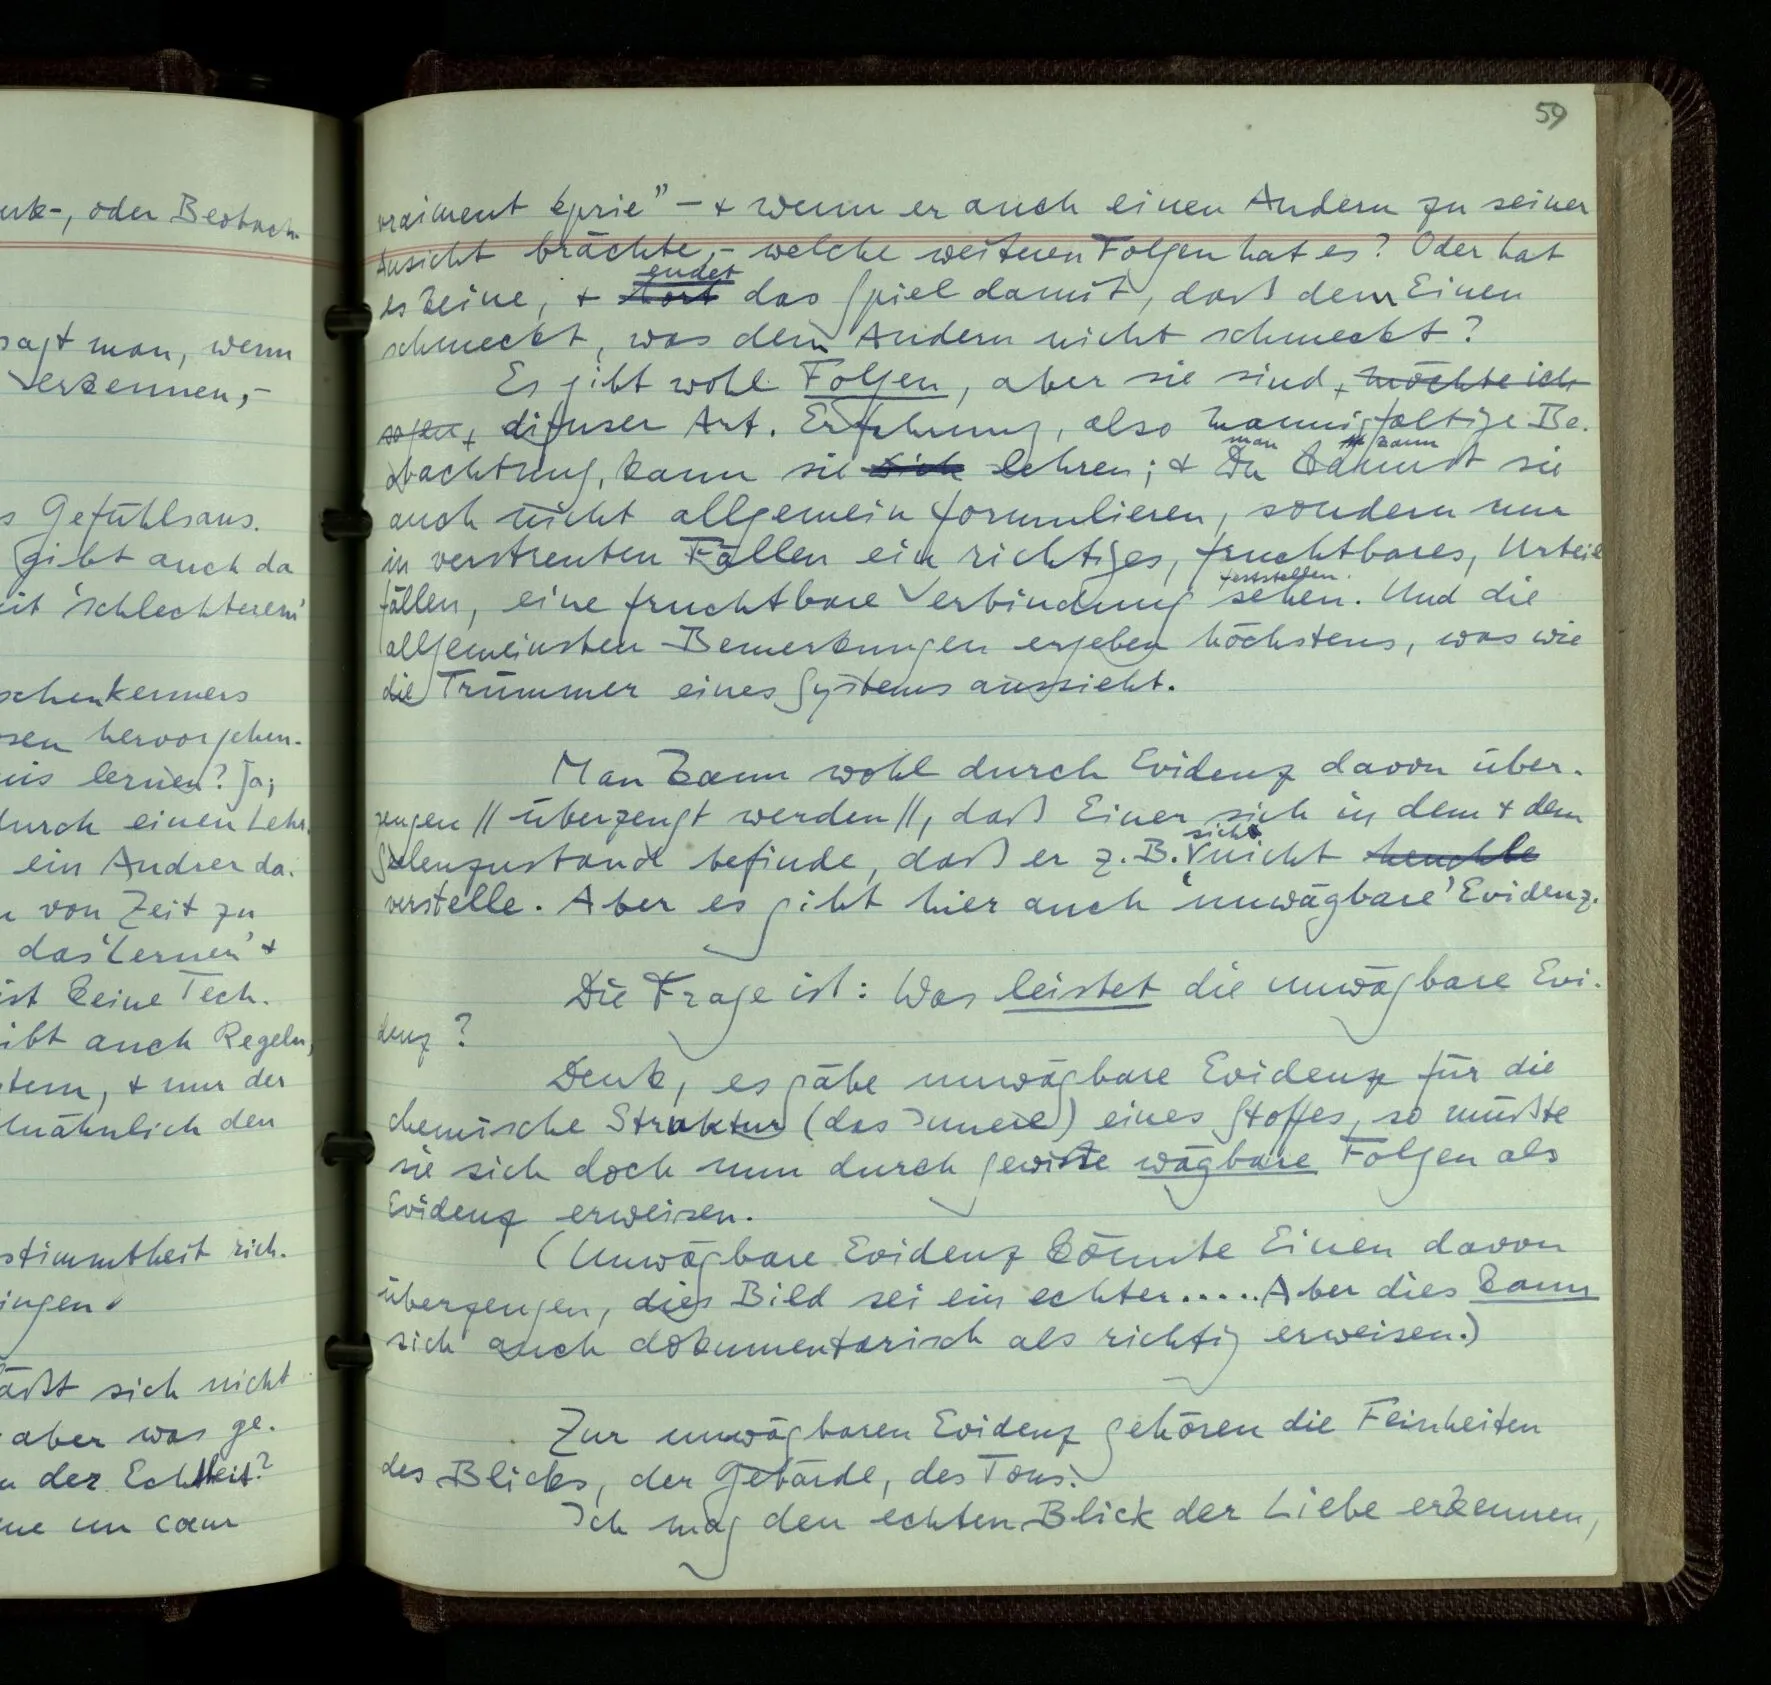 erk-, oder Beobach-
sagt man, wenn
Verkennen,-
s Gefühlsaus.
gibt auch da
mit 'schlechterem'
schenkenners
sen hervorgehen.
nis lernen? Ja;
durch einen Lehr.
ein Andrer da.
n von Zeit zu
das 'Lernen' +
ist keine Tech.
ibt auch Regeln,
tem, + nur der
Unähnlich den
stimmtheit rich.
ingen.
äßt sich nicht
aber was ge.
n der Echtheit?
me un cœur
59
vraiment épris” – + wenn er auch einen Andern zu seiner
Ansicht brächte, – welche weiteren Folgen hat es? Oder hat
endet
es keine, + hört das Spiel damit, daß dem Einen
schmeckt, was dem Andern nicht schmeckt?
Es gibt wohl Folgen, aber sie sind, möchte ich
sagen, difuser Art. Erfahrung, also mannigfaltige Be.
man kann
obachtung, kann sie dich lehren; + Du kannst sie
auch nicht allgemein formulieren, sondern nur
in verstreuten Fällen ein richtiges, fruchtbares, Urteil
feststellen.
fällen, eine fruchtbare Verbindung sehen. Und die
allgemeinsten Bemerkungen ergeben höchstens, was wie
die Trümmer eines Systems aussieht.
Man kann wohl durch Evidenz davon über.
zeugen // überzeugt werden //, daß Einer sich in dem + dem
sich
Seelenzustand befinde, daß er z. B. nicht heuchle
verstelle. Aber es gibt hier auch 'unwägbare' Evidenz.
Die Frage ist: Was leistet die unwägbare Evi.
denz?
Denk, es gäbe unwägbare Evidenz für die
chemische Struktur (das Innere) eines Stoffes, so müßte
sie sich doch nun durch gewiße wägbare Folgen als
Evidenz erweisen.
(Unwägbare Evidenz könnte Einen davon
überzeugen, dies Bild sei ein echter..... Aber dies kann
sich auch dokumentarisch als richtig erweisen.)
Zur unwägbaren Evidenz gehören die Feinheiten
des Blicks, der Gebärde, des Tons.
Ich mag den echten Blick der Liebe erkennen,